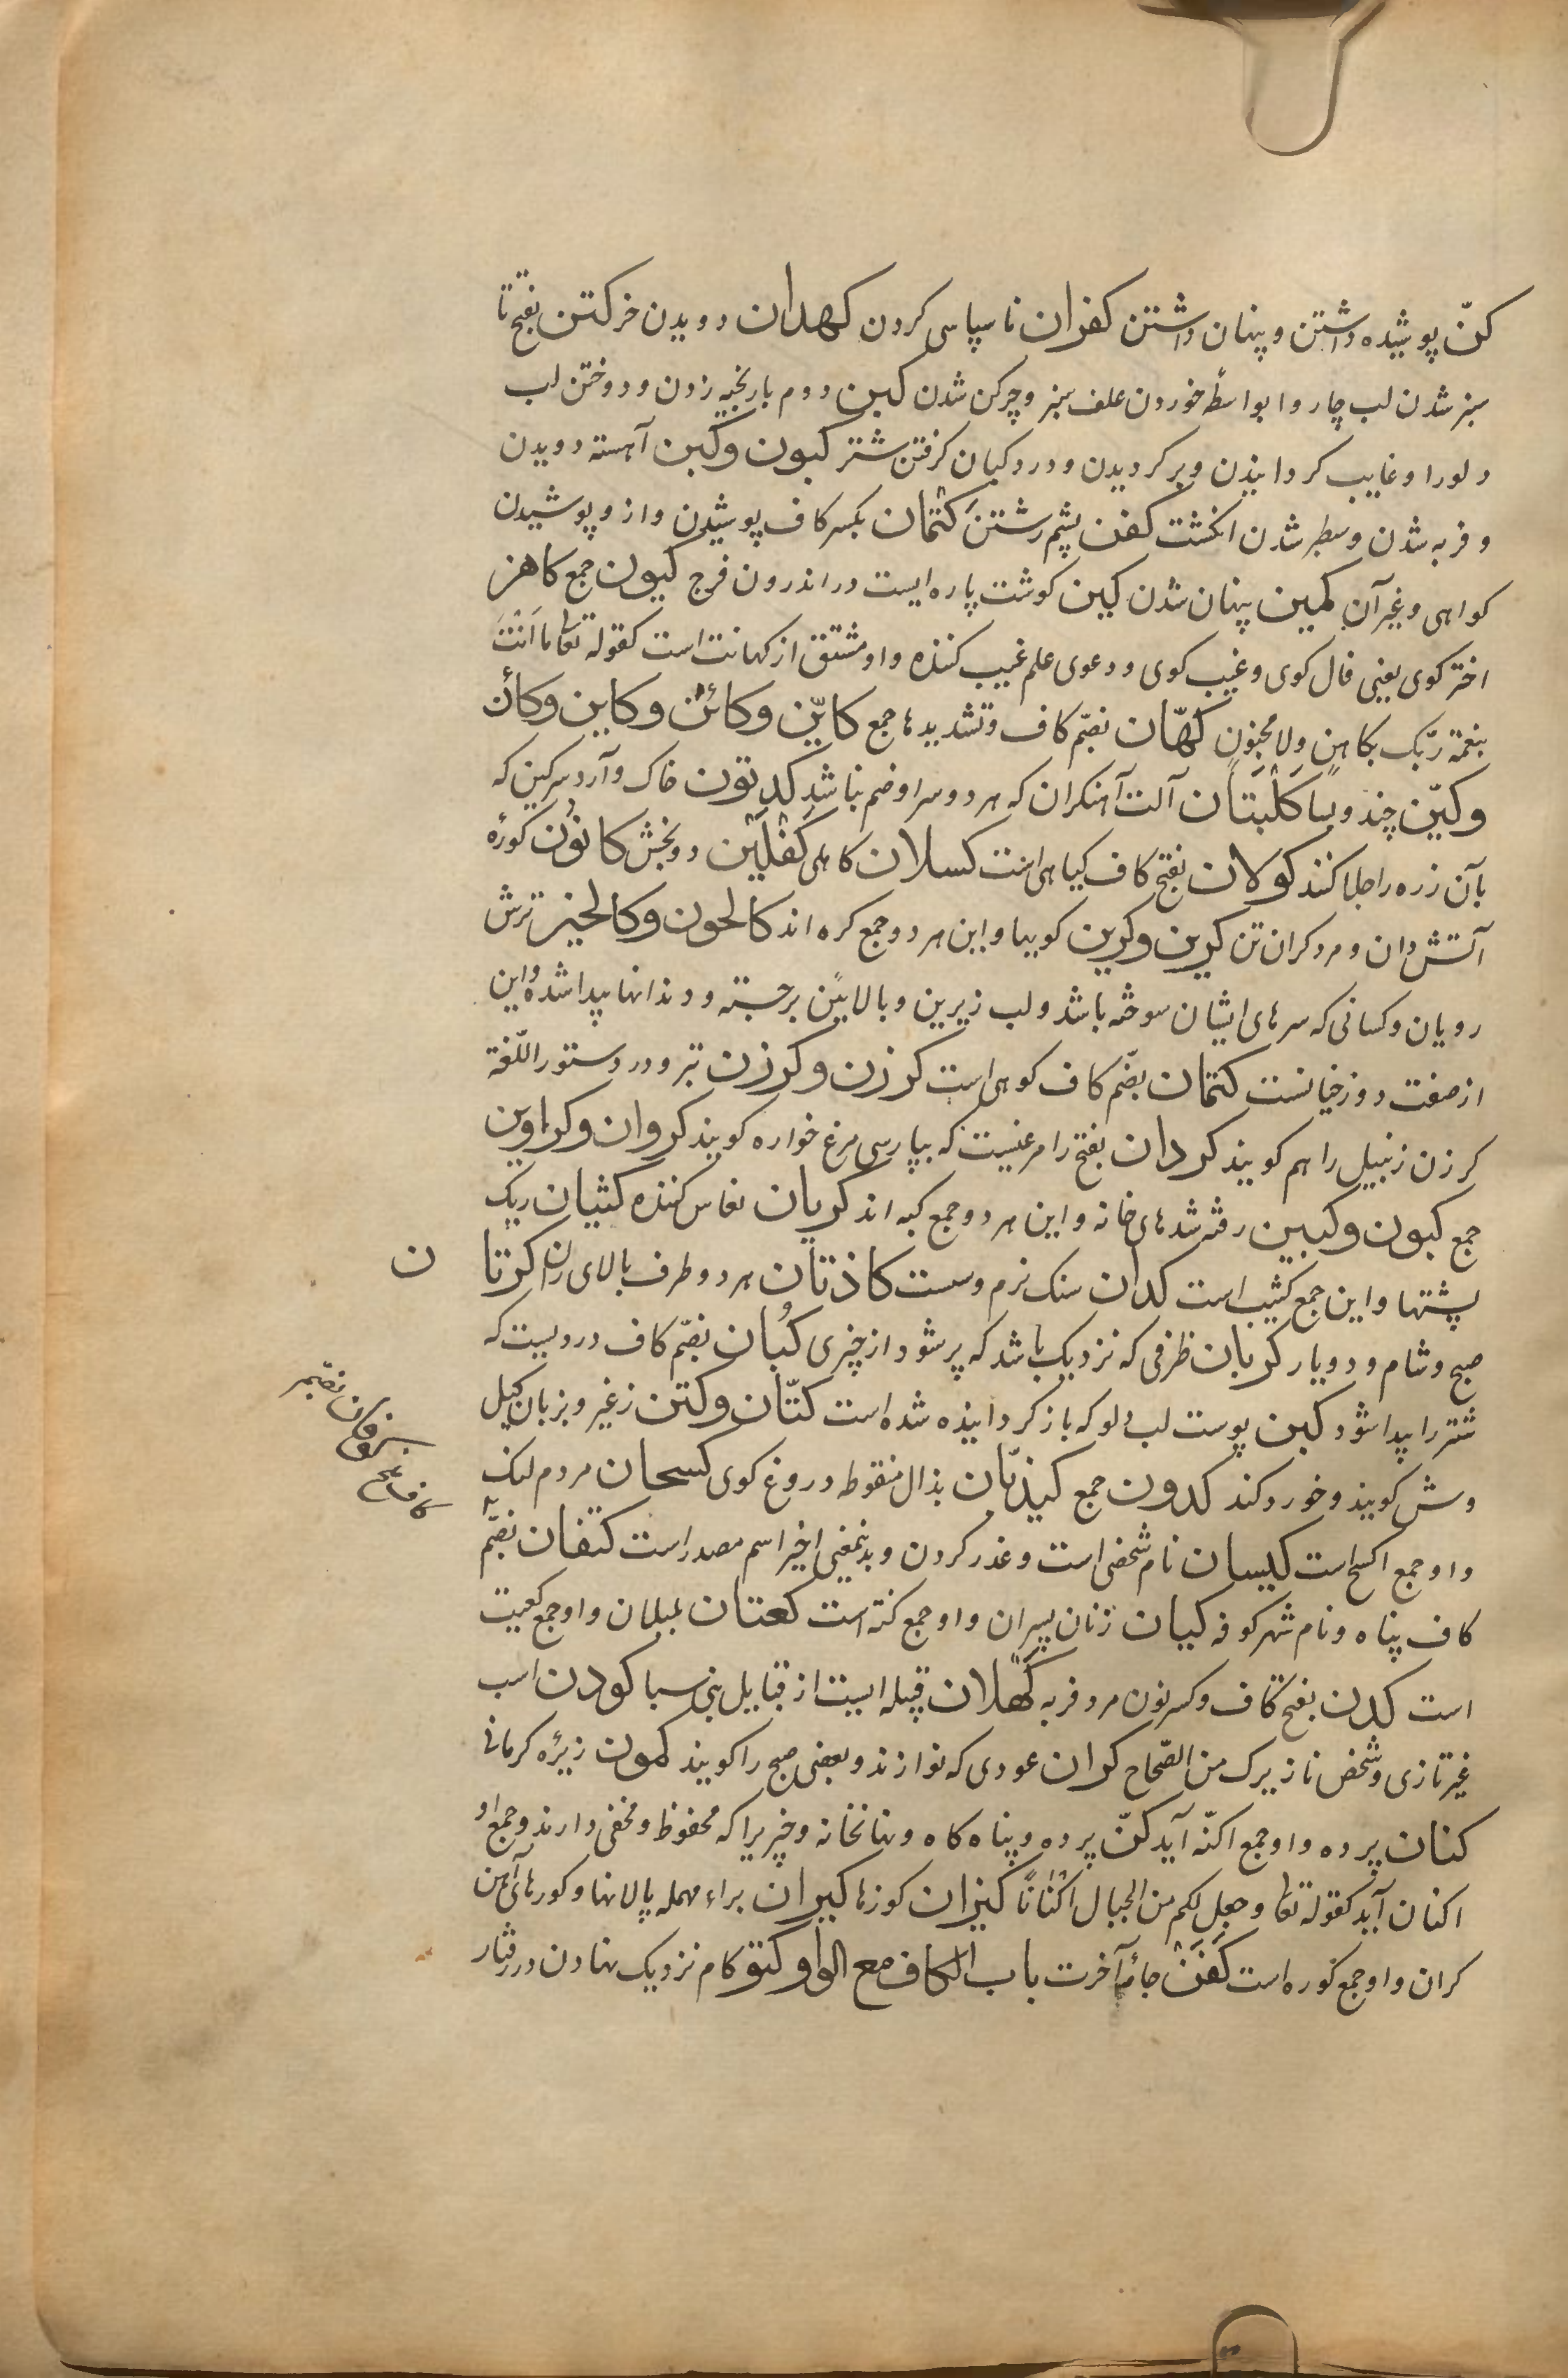 کنّ پوشیده داشتن و پنهان داشتن کفران ناسپاسی کردن کهدان دویدن خر کتن بفتح تا
سبز شدن لب چاروا بواسطهٔ خوردن علف سبز و چرکن شدن کبن دوم بار بخیه زدن و دوختن لب
دلو را و غایب کردانیدن و برکردیدن و در دکان کرفتن شتر کبون و کبن آهسته دویدن
و فربه شدن و سطبر شدن انکشت کفن پشم رشتن کتمان بکسر کاف پوشیدن و از و پوشیدن
کواهی و غیر آن کمین پنهان شدن کین کوشت پاره ایست در اندرون فرج کیون جمع کاهن
اختر کوی یعنی فال کوی و غیب کوی و دعوی علم غیب کننده و او مشتق از کهانت است کقوله تعا ما انت
بنعمة ربّک بکاهن و لا مجنون کهّان بضمّ کاف و تشدید ها جمع کایّن و کائن و کاین و کأن
و کیّن چند و بسا کلبتان آلت آهنکران که هر دو سر او ضم بناشد کدتون خاک و آرد سرکین که
بآن زره را جلا کنند کولان بفتح کاف کیاهی است کسلان کاهل کفلین دو بخش کانون کورهٔ
آتش دان و مرد کران تن کرین و کرین کوبیها و این هر دو جمع کره اند کالحون و کالحین ترش
رویان و کسانی که سرهای ایشان سوخته باشد و لب زیرین و بالایین برجسته و دندانها پیدا شده و این
از صفت دوزخیانست کتمان بضمّ کاف کوهی است کرزن و کرزن تبر و در دستور اللّغة
کرزن زنبیل را هم کویند کردان بفتح را مرغیست که بپارسی مرغ خواره کویند کروان و کراوین
جمع کبون و کبین رفته شدهای خانه و این هر دو جمع کبه اند کریان نعاس کننده کثبان ریک
پشتها و این جمع کثیب است کدان سنک نرم و سست کاذتان هر دو طرف بالای ران کرتا ن
صبح و شام و دو یار کربان ظرفی که نزدیک باشد که پر شود از چیزی کبان بضمّ کاف دردیست که
شتر را پیدا شود کبن پوست لب دلو که باز کردانیده شده است کتّان و کتن زغیر و بزبان کیل
وش کویند و خورد کند کدون جمع کیذبّان بذال منقوطه دروغ کوی کسحان مردم لنک
و او جمع اکسح است کیسان نام شخصی است و غدر کردن و بدینمعنی اخیر اسم مصدر است کتفان بضمّ
کاف پناه و نام شهر کوفه کبان زنان پسران و او جمع کنّه است کعتان بلبلان و او جمع کعیت
است کدن بفتح کاف و کسر نون مرد فربه کهلان قبیله ایست از قبایل بنی سبا کودن اسب
غیر تازی و شخص نازیرک من الصّحاح کران عودی که نوازند و بعضی صبح را کویند کمون زیرهٔ کرمانی
کنان پرده و او جمع اکنّه آید کنّ پرده و پناه کاه و نهانخانه و چیزیرا که محفوظ و مخفی دارند و جمع او
اکنان آید کقوله تعا و جعل لکم من الجبال اکنانًا کیزان کوزها کیران براء مهمله پالانها و کورهای آهن
کران و او جمع کوره است کفن جامهٔ آخرت باب الکاف مع الواو کتو کام نزدیک نهادن در رفتار